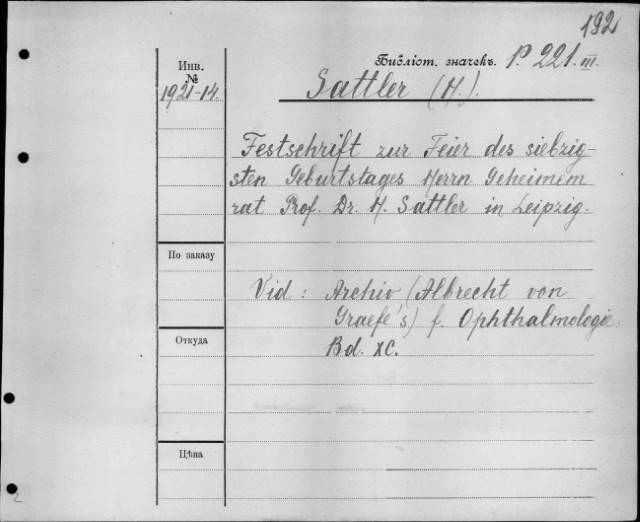 192
Инв.
№
1921-14.
Библіот. значекъ. P. 221. III.
Sattler (H.).
Festschrift zur Feier des siebzig-
sten Geburtstages Herrn Geheimem
rat Prof. Dr. H. Sattler in Leipzig.
По заказу
Vid: Archiv (Albrecht von
Graefe's) f. Ophthalmologie.
Bd. XC.
Откуда
Цѣна
2